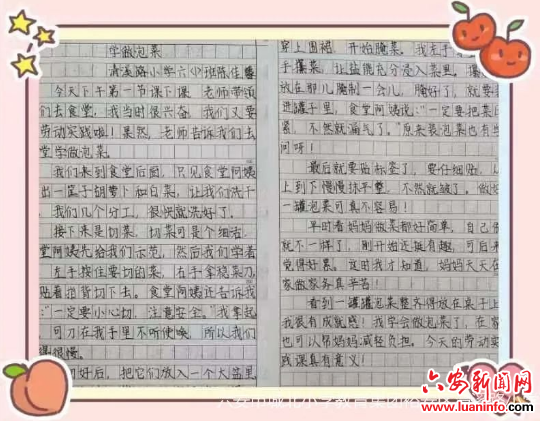 学做泡菜
清溪路小学六(1)班陈佳馨
今天下午第一节课下课，老师带领
们去食堂，我当时很兴奋，我们又要
劳动实践啦！果然，老师告诉我们去
堂学做泡菜。
我们来到食堂后面，只见食堂阿姨
出一筐子胡萝卜和白菜，让我们洗干
，我们几个分工，很快就洗好了。
接下来是切菜，切菜可是个细活，
堂阿姨先给我们示范，然后我们学着
左手按住要切的菜，右手拿绕菜刀
贴着指背切下去。食堂阿姨还告诉我
：“一定要小心切，注意安全。”我拿起
可刀在我手里不听使唤，所以我们
得很慢。
切好后，把它们放入一个大盆里
穿上围裙，开始腌菜。我左手
手揉菜，让盐能充分浸入菜里，
放在那儿腌制一会儿，腌好了，就要
进罐子里，食堂阿姨说：“一定要把菜
紧，不然就漏气了。”原来装泡菜也有
问呀！
最后就要贴标签了，要仔细贴，从
上到下慢慢抹平整，不然就皱了。做好
一罐泡菜可真不容易！
平时看妈妈做菜都好简单，自己
就不一样了，刚开始还挺有趣，可后来
觉得好累。这时我才知道，妈妈天天在
家做家务真辛苦！
看到一罐罐泡菜整齐得放在桌子上
我很有成就感！我学会做泡菜了，在家
也可以帮妈妈减轻负担。今天的劳动实
践课真有意义！
六安新闻网
www.luaninfo.com